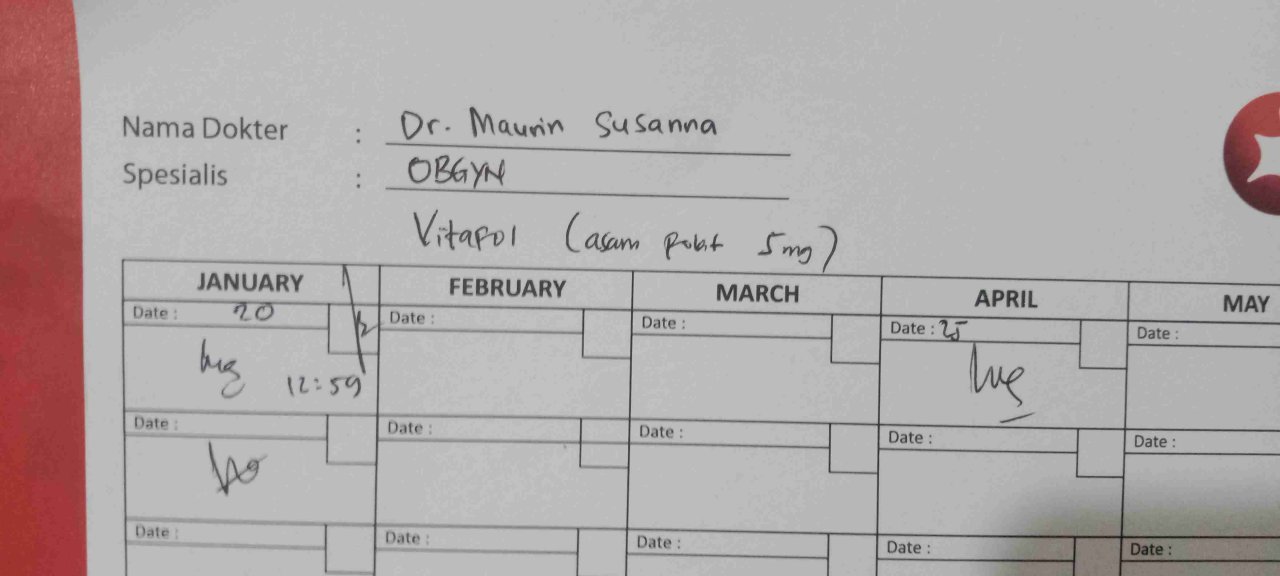 Nama Dokter : Dr. Maurin Susanna
Spesialis : OBGYN
Vitafol (asam folat 5 mg)
JANUARY FEBRUARY MARCH APRIL MAY
Date : 20 Date : Date : Date : 25 Date :
12:59
Date : Date : Date : Date : Date :
Date : Date : Date : Date : Date :